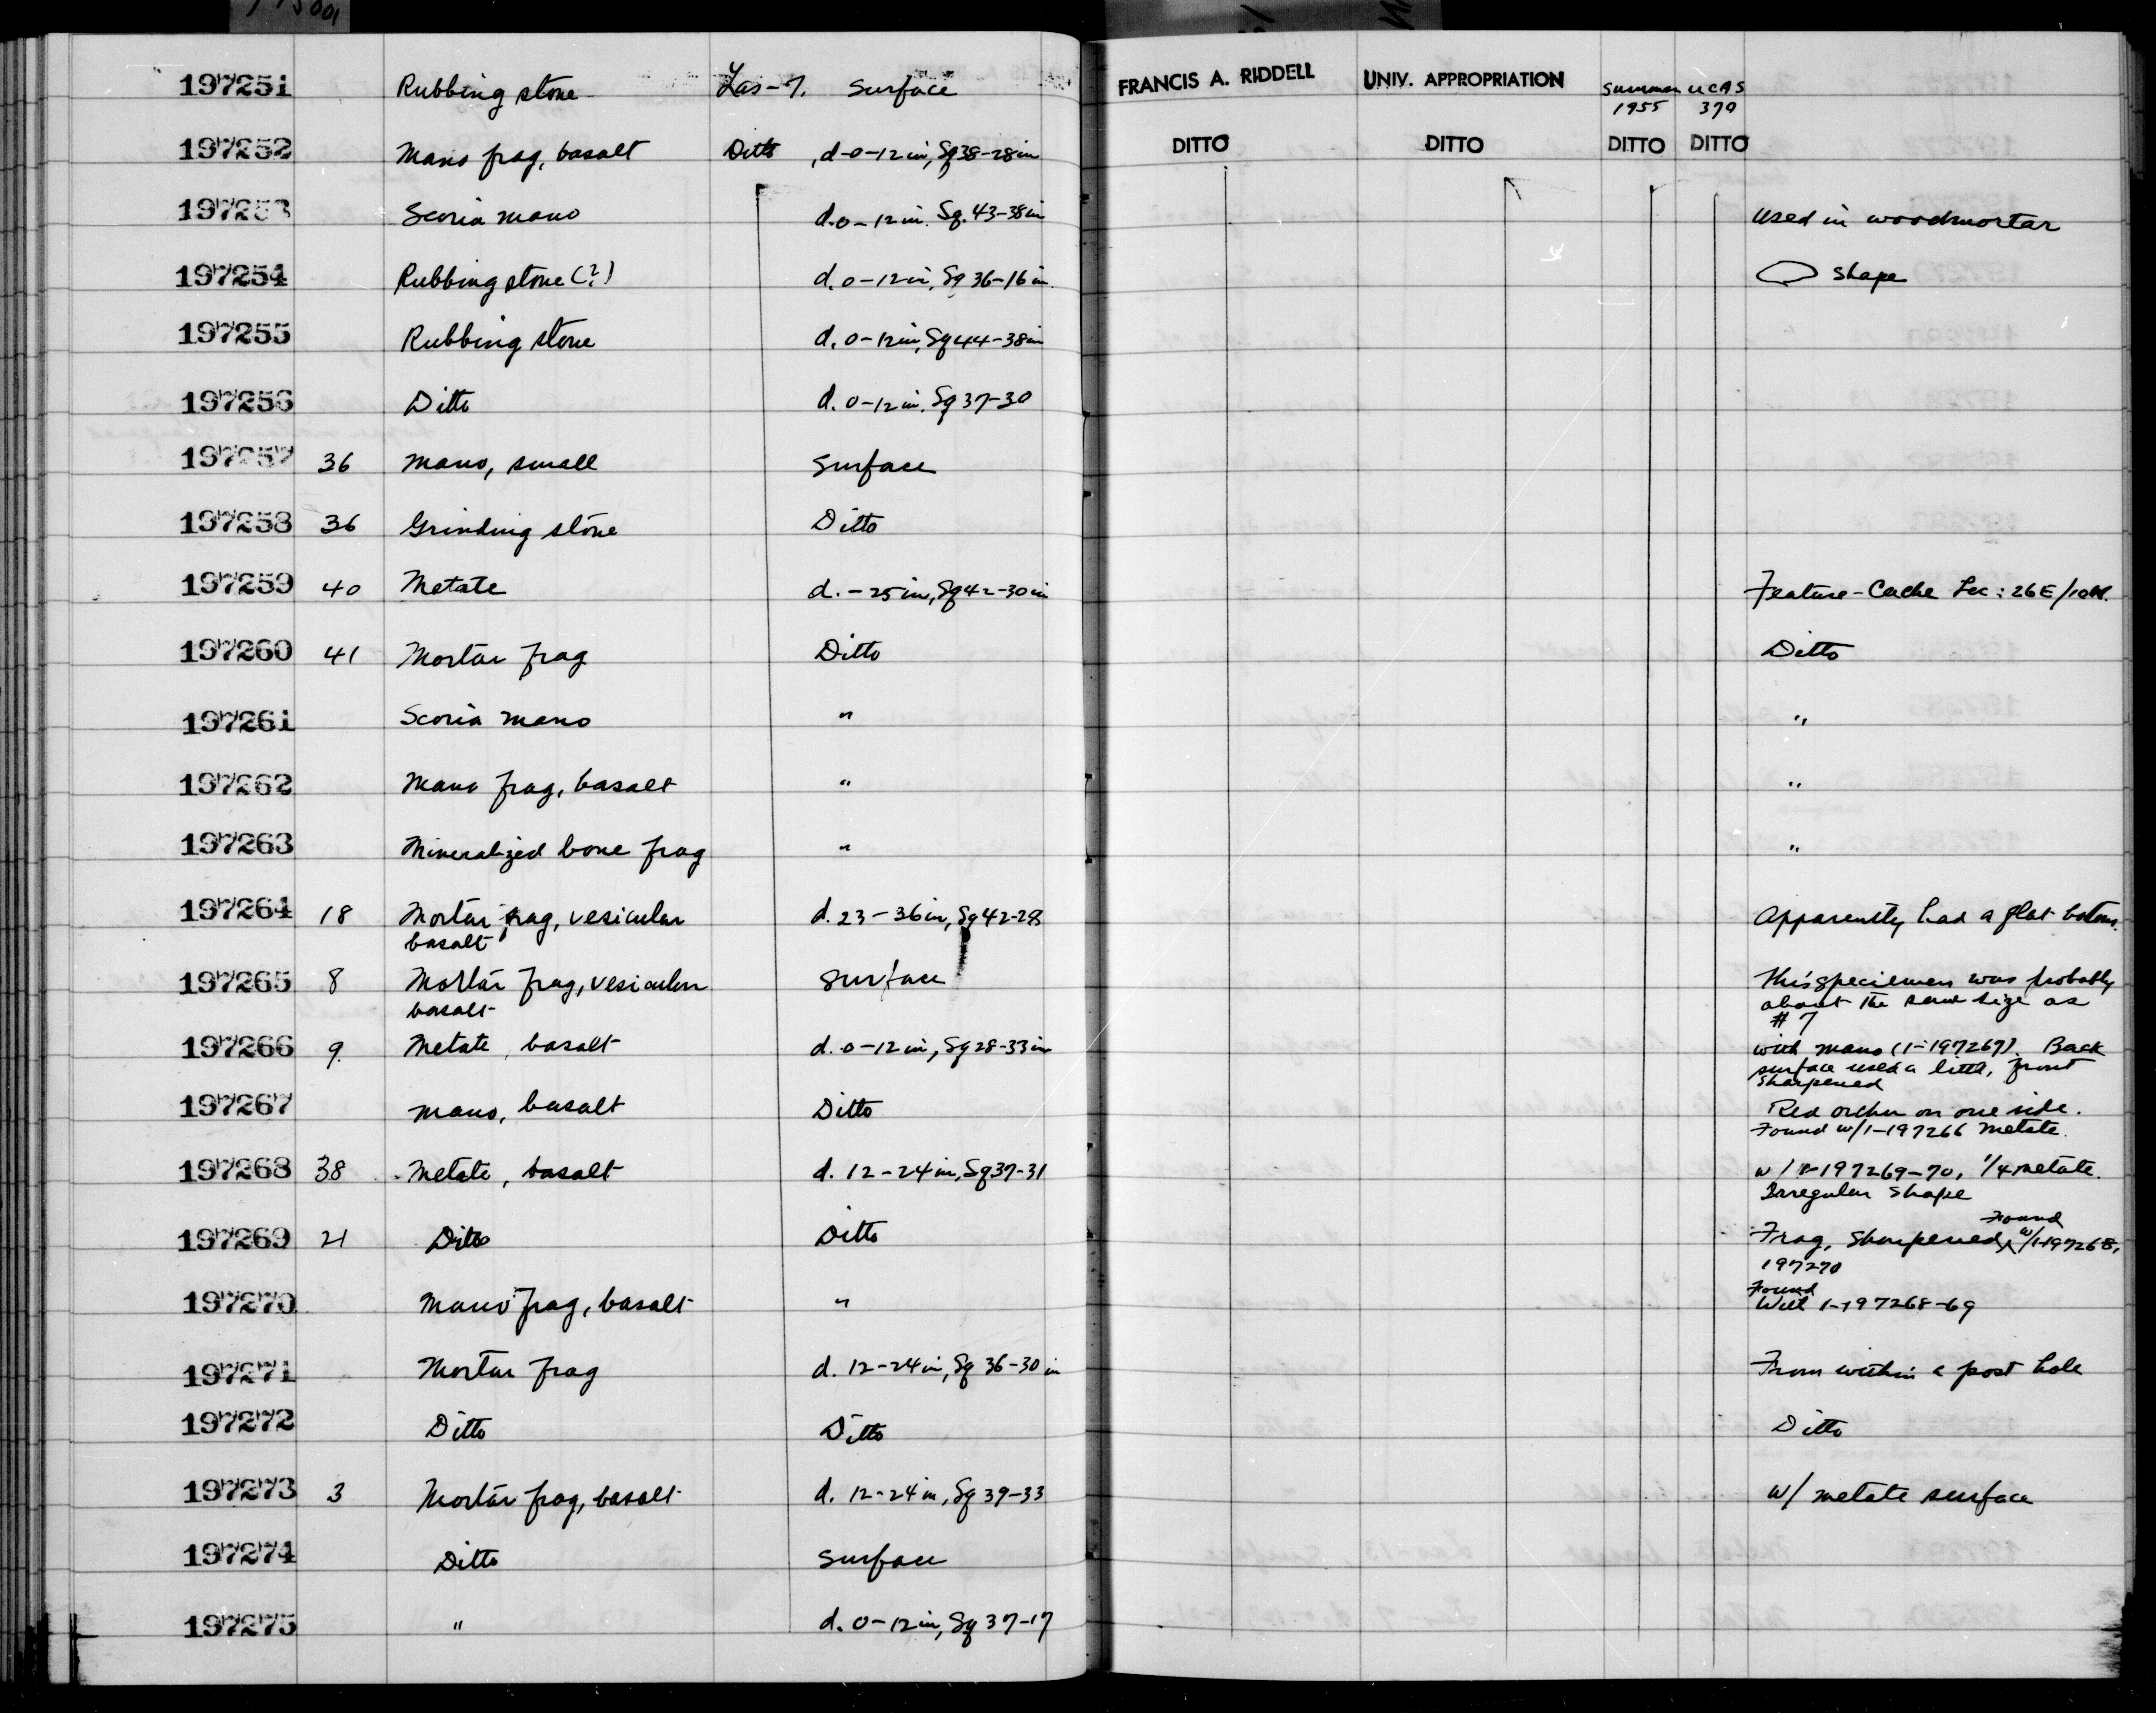 197251 Rubbing stone Las-7. Surface FRANCIS A. RIDDELL UNIV. APPROPRIATION Summer 1955 UCAS 370
197252 Mano frag, basalt Ditto , d-0-12 in, Sq 38-28 in DITTO DITTO DITTO DITTO
197253 Scoria mano d. 0-12 in. Sq. 43-38 in used in woodmortar
197254 Rubbing stone (?) d. 0-12 in, Sq 36-16 in. shape
197255 Rubbing stone d. 0-12 in, Sq 44-38 in
197256 Ditto d. 0-12 in, Sq 37-30
197257 36 Mano, small Surface
197258 36 Grinding stone Ditto
197259 40 Metate d. -25 in, Sq 42-30 in Feature-Cache Loc: 26E/10N.
197260 41 Mortar frag Ditto Ditto
197261 Scoria mano " "
197262 Mano frag, basalt " "
197263 Mineralized bone frag " "
197264 18 Mortar frag, vesicular d. 23-36 in, Sq 42-28 Apparently had a flat bottom.
basalt
197265 8 Mortar frag, vesicular Surface This specimen was probably
basalt about the same size as
# 7
197266 9. Metate, basalt d. 0-12 in, Sq 28-33 in with mano (1-197267). Back
surface used a little, front
sharpened
197267 Mano, basalt Ditto Red ocher on one side.
Found w/1-197266 metate.
197268 38 Metate, basalt d. 12-24 in, Sq 37-31 w/ 1-197269-70, 1/4 metate.
Irregular shape
197269 21 Ditto Ditto Frag, sharpened, Found w/1-197268,
197270
197270 Mano frag, basalt " Found
With 1-197268-69
197271 Mortar frag d. 12-24 in, Sq 36-30 in From within a post hole
197272 Ditto Ditto Ditto
197273 3 Mortar frag, basalt d. 12-24 in, Sq 39-33 w/ metate surface
197274 Ditto Surface
197275 " d. 0-12 in, Sq 37-17